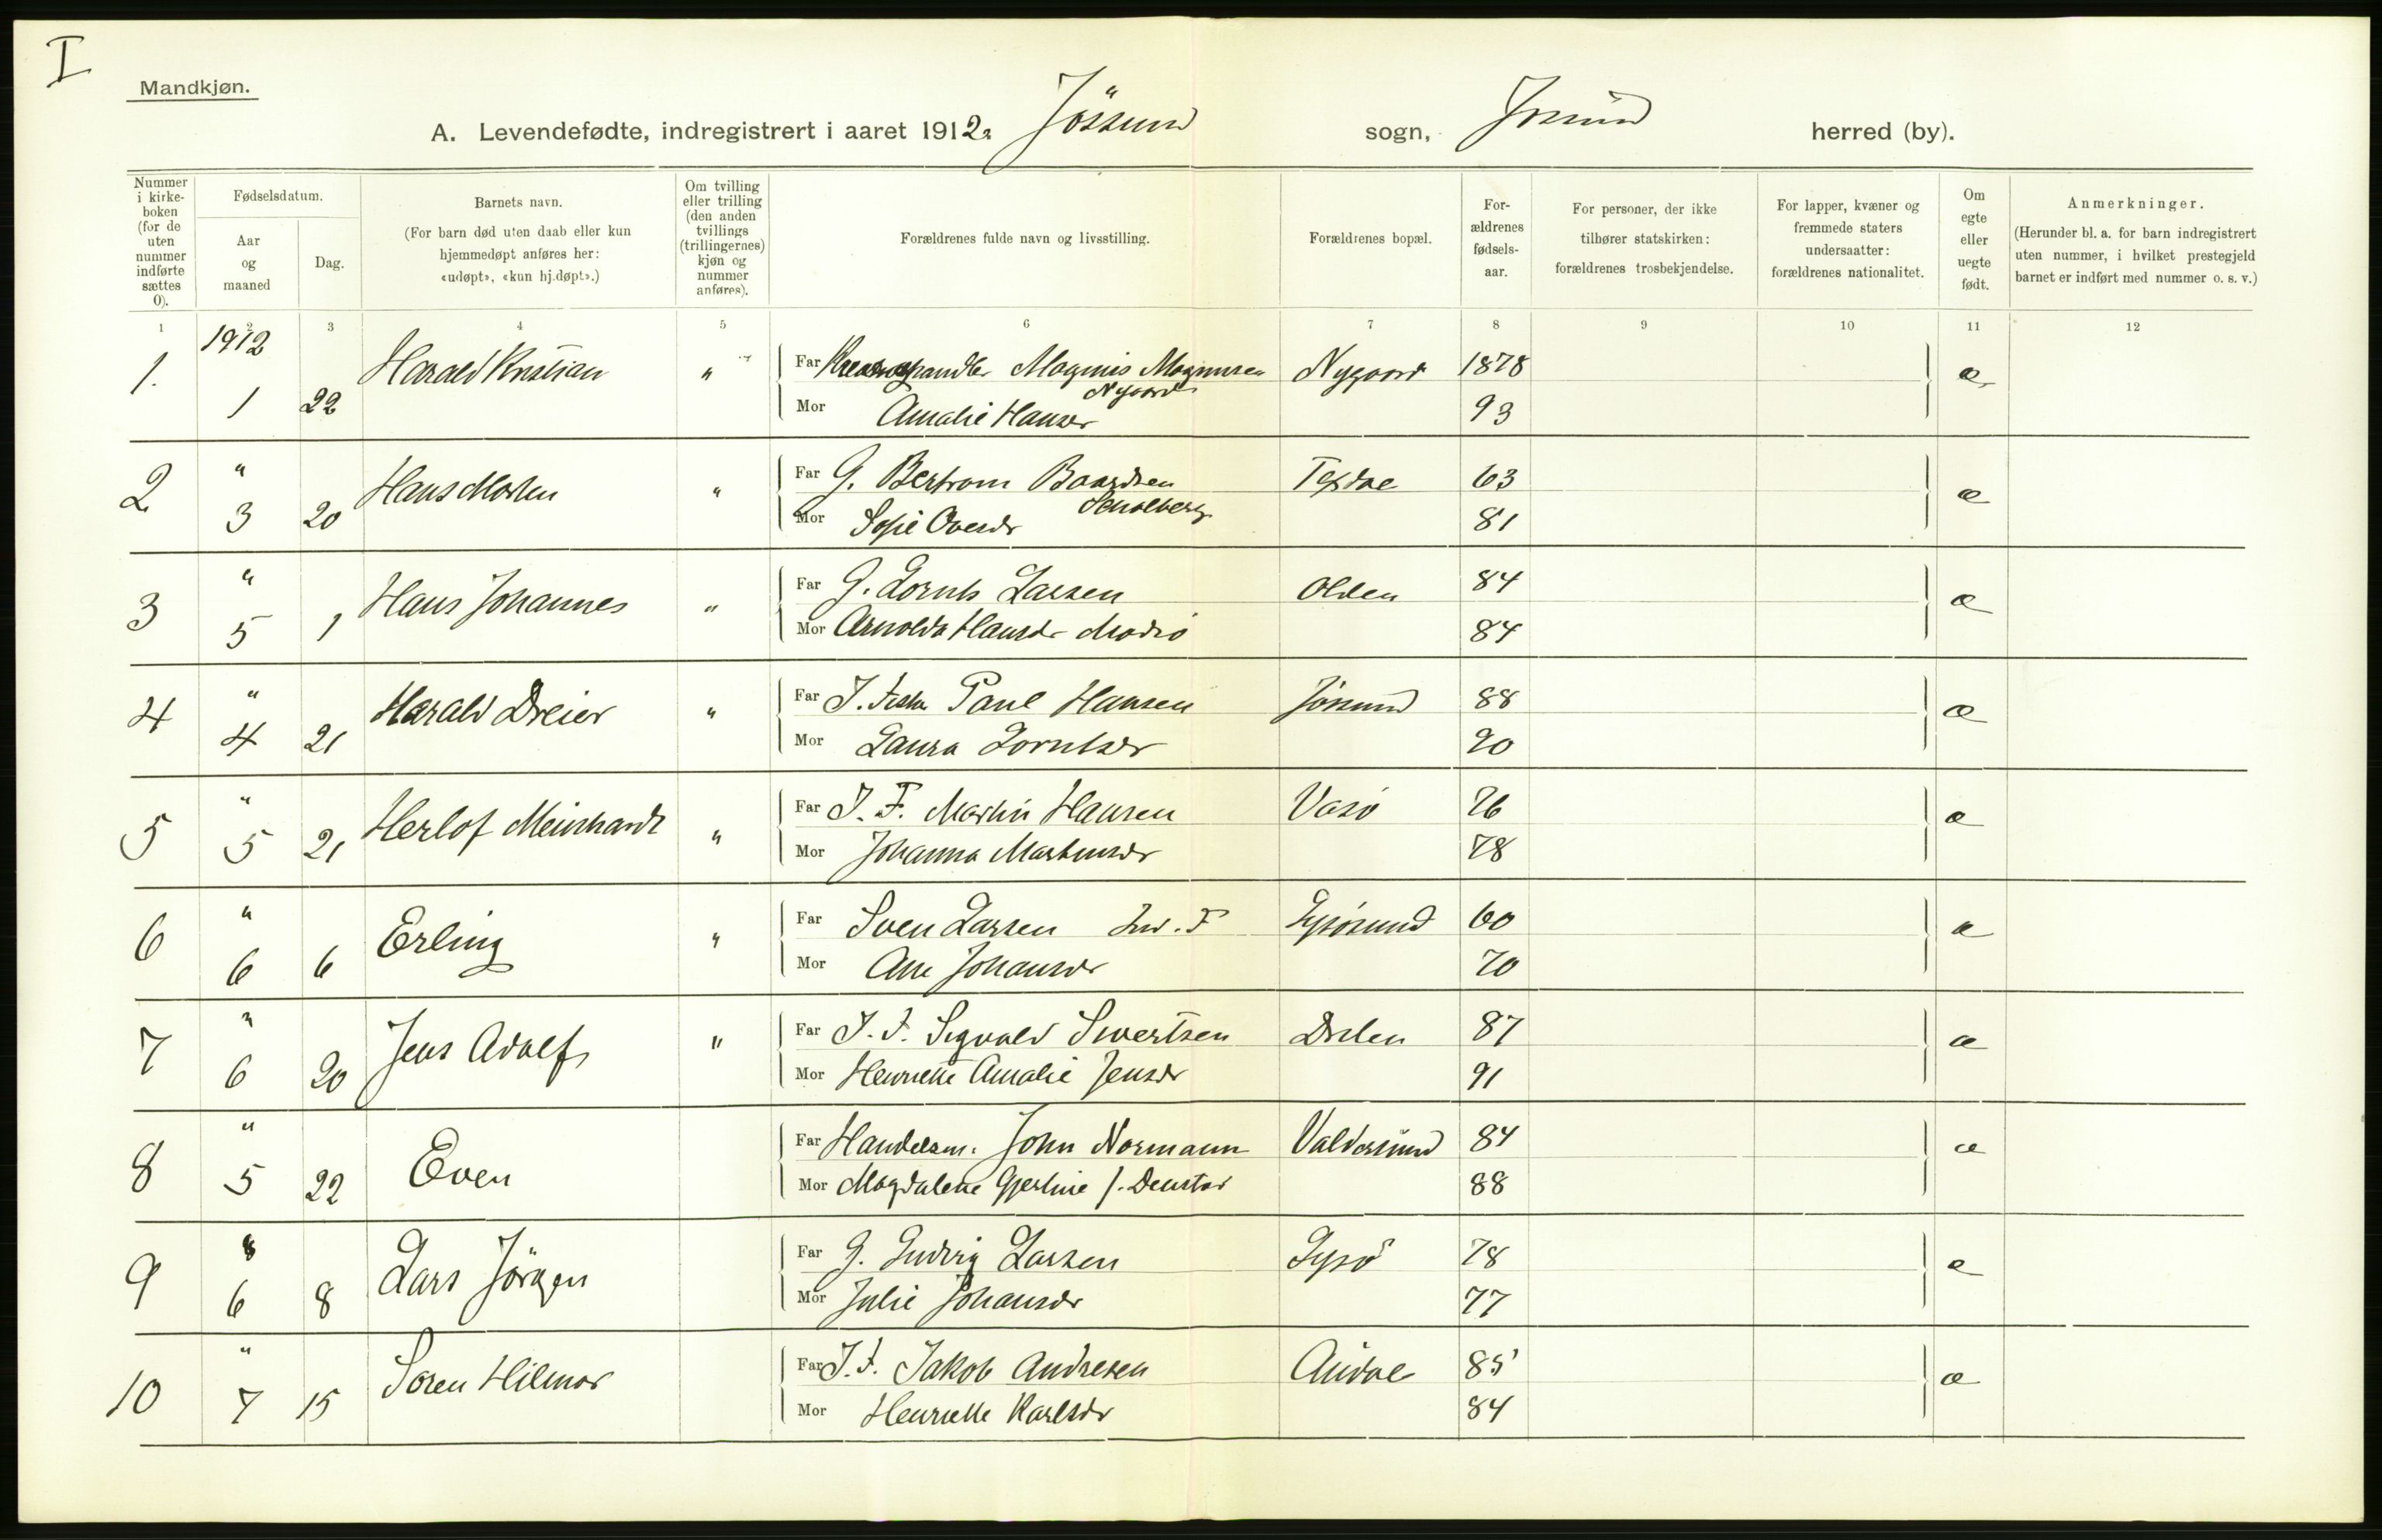 I
Mandkjøn.
A. Levendefødte, indregistrert i aaret 1912. Jössund sogn, Jössund herred (by).
Nummer i kirke-boken (for de uten nummer indførte sættes 0).
Fødselsdatum.
Aar og maaned
Dag.
Barnets navn.
(For barn død uten daab eller kun hjemmedøpt anføres her: «udøpt», «kun hj.døpt».)
Om tvilling eller trilling (den anden tvillings (trillingernes) kjøn og nummer anføres).
Forældrenes fulde navn og livsstilling.
Forældrenes bopæl.
For-ældrenes fødsels-aar.
For personer, der ikke tilhører statskirken: forældrenes trosbekjendelse.
For lapper, kvæner og fremmede staters undersaatter: forældrenes nationalitet.
Om egte eller uegte født.
Anmerkninger.
(Herunder bl. a. for barn indregistrert uten nummer, i hvilket prestegjeld barnet er indført med nummer o. s. v.)
1 2 3 4 5 6 7 8 9 10 11 12
1912
1. 1 22 Harald Kristian " Far Magnus Magnusen Nygaard Nygaard 1878 æ
Mor Amalie Hansdr 93
2 " 3 20 Hans Morten " Far G. Bertram Baardsen Tepdal 63 æ
Mor Sofie Ovesdr 81
3 " 5 1 Hans Johannes " Far G. Lornts Larsen Olden 84 æ
Mor Arnolda Hansdr Madsø 84
4 " 4 21 Harald Dreier " Far I. Fisker Paul Hansen Jössund 88 æ
Mor Laura Lorntsdr 90
5 " 5 21 Herlof Meinhardt " Far I. F. Martin Hansen Vasø 76 æ
Mor Johanna Martinsdr 78
6 " 6 6 Erling " Far Sven Larsen Ind. F Lysøsund 60 æ
Mor Ane Johansdr 70
7 " 6 20 Jens Adolf " Far I. F. Sigvald Sivertsen Dselen 87 æ
Mor Henriette Amalie Jensdr 91
8 " 5 22 Even Far Handelsm. John Normann Valdersund 84 æ
Mor Magdalene Gjertine f. Denstad 88
9 " 6 8 Lars Jörgen Far G. Ludvig Larsen Lysö 78 æ
Mor Julie Johansdr 77
10 " 7 15 Søren Hilmar Far I. F. Jakob Andresen Aüdal 85 æ
Mor Henriette Karlsdr 84